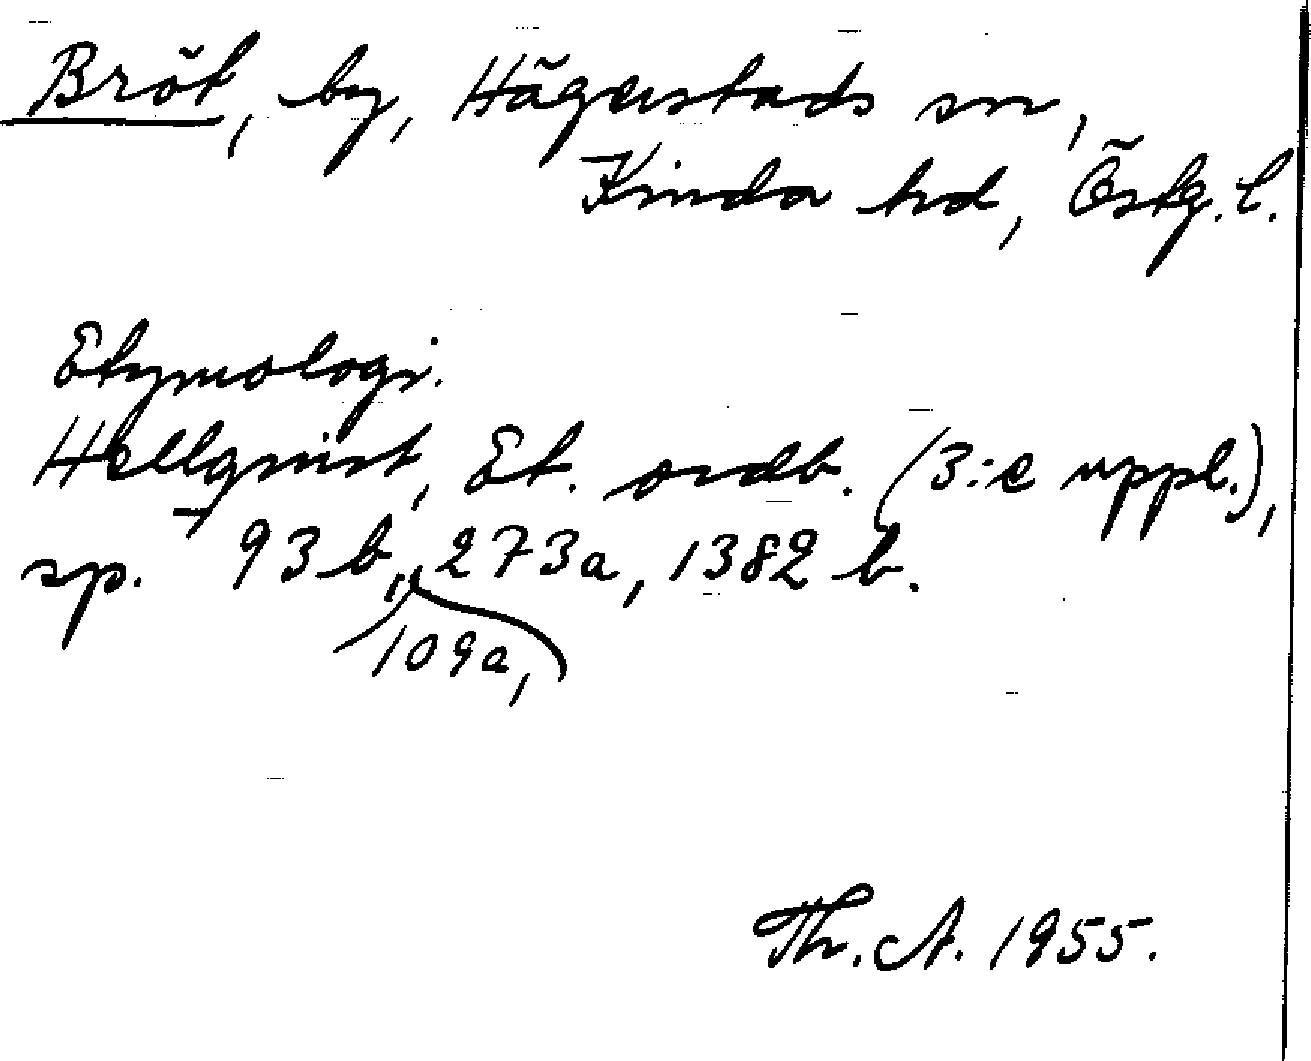 Bröt, by, Hägerstads sn,
Kinda hd, Östg. l.
Etymologi.
Hellquist, Et. ordb. (3:e uppl.),
sp. 93 b, 109a, 273a, 1382 b.
Th. A. 1955.